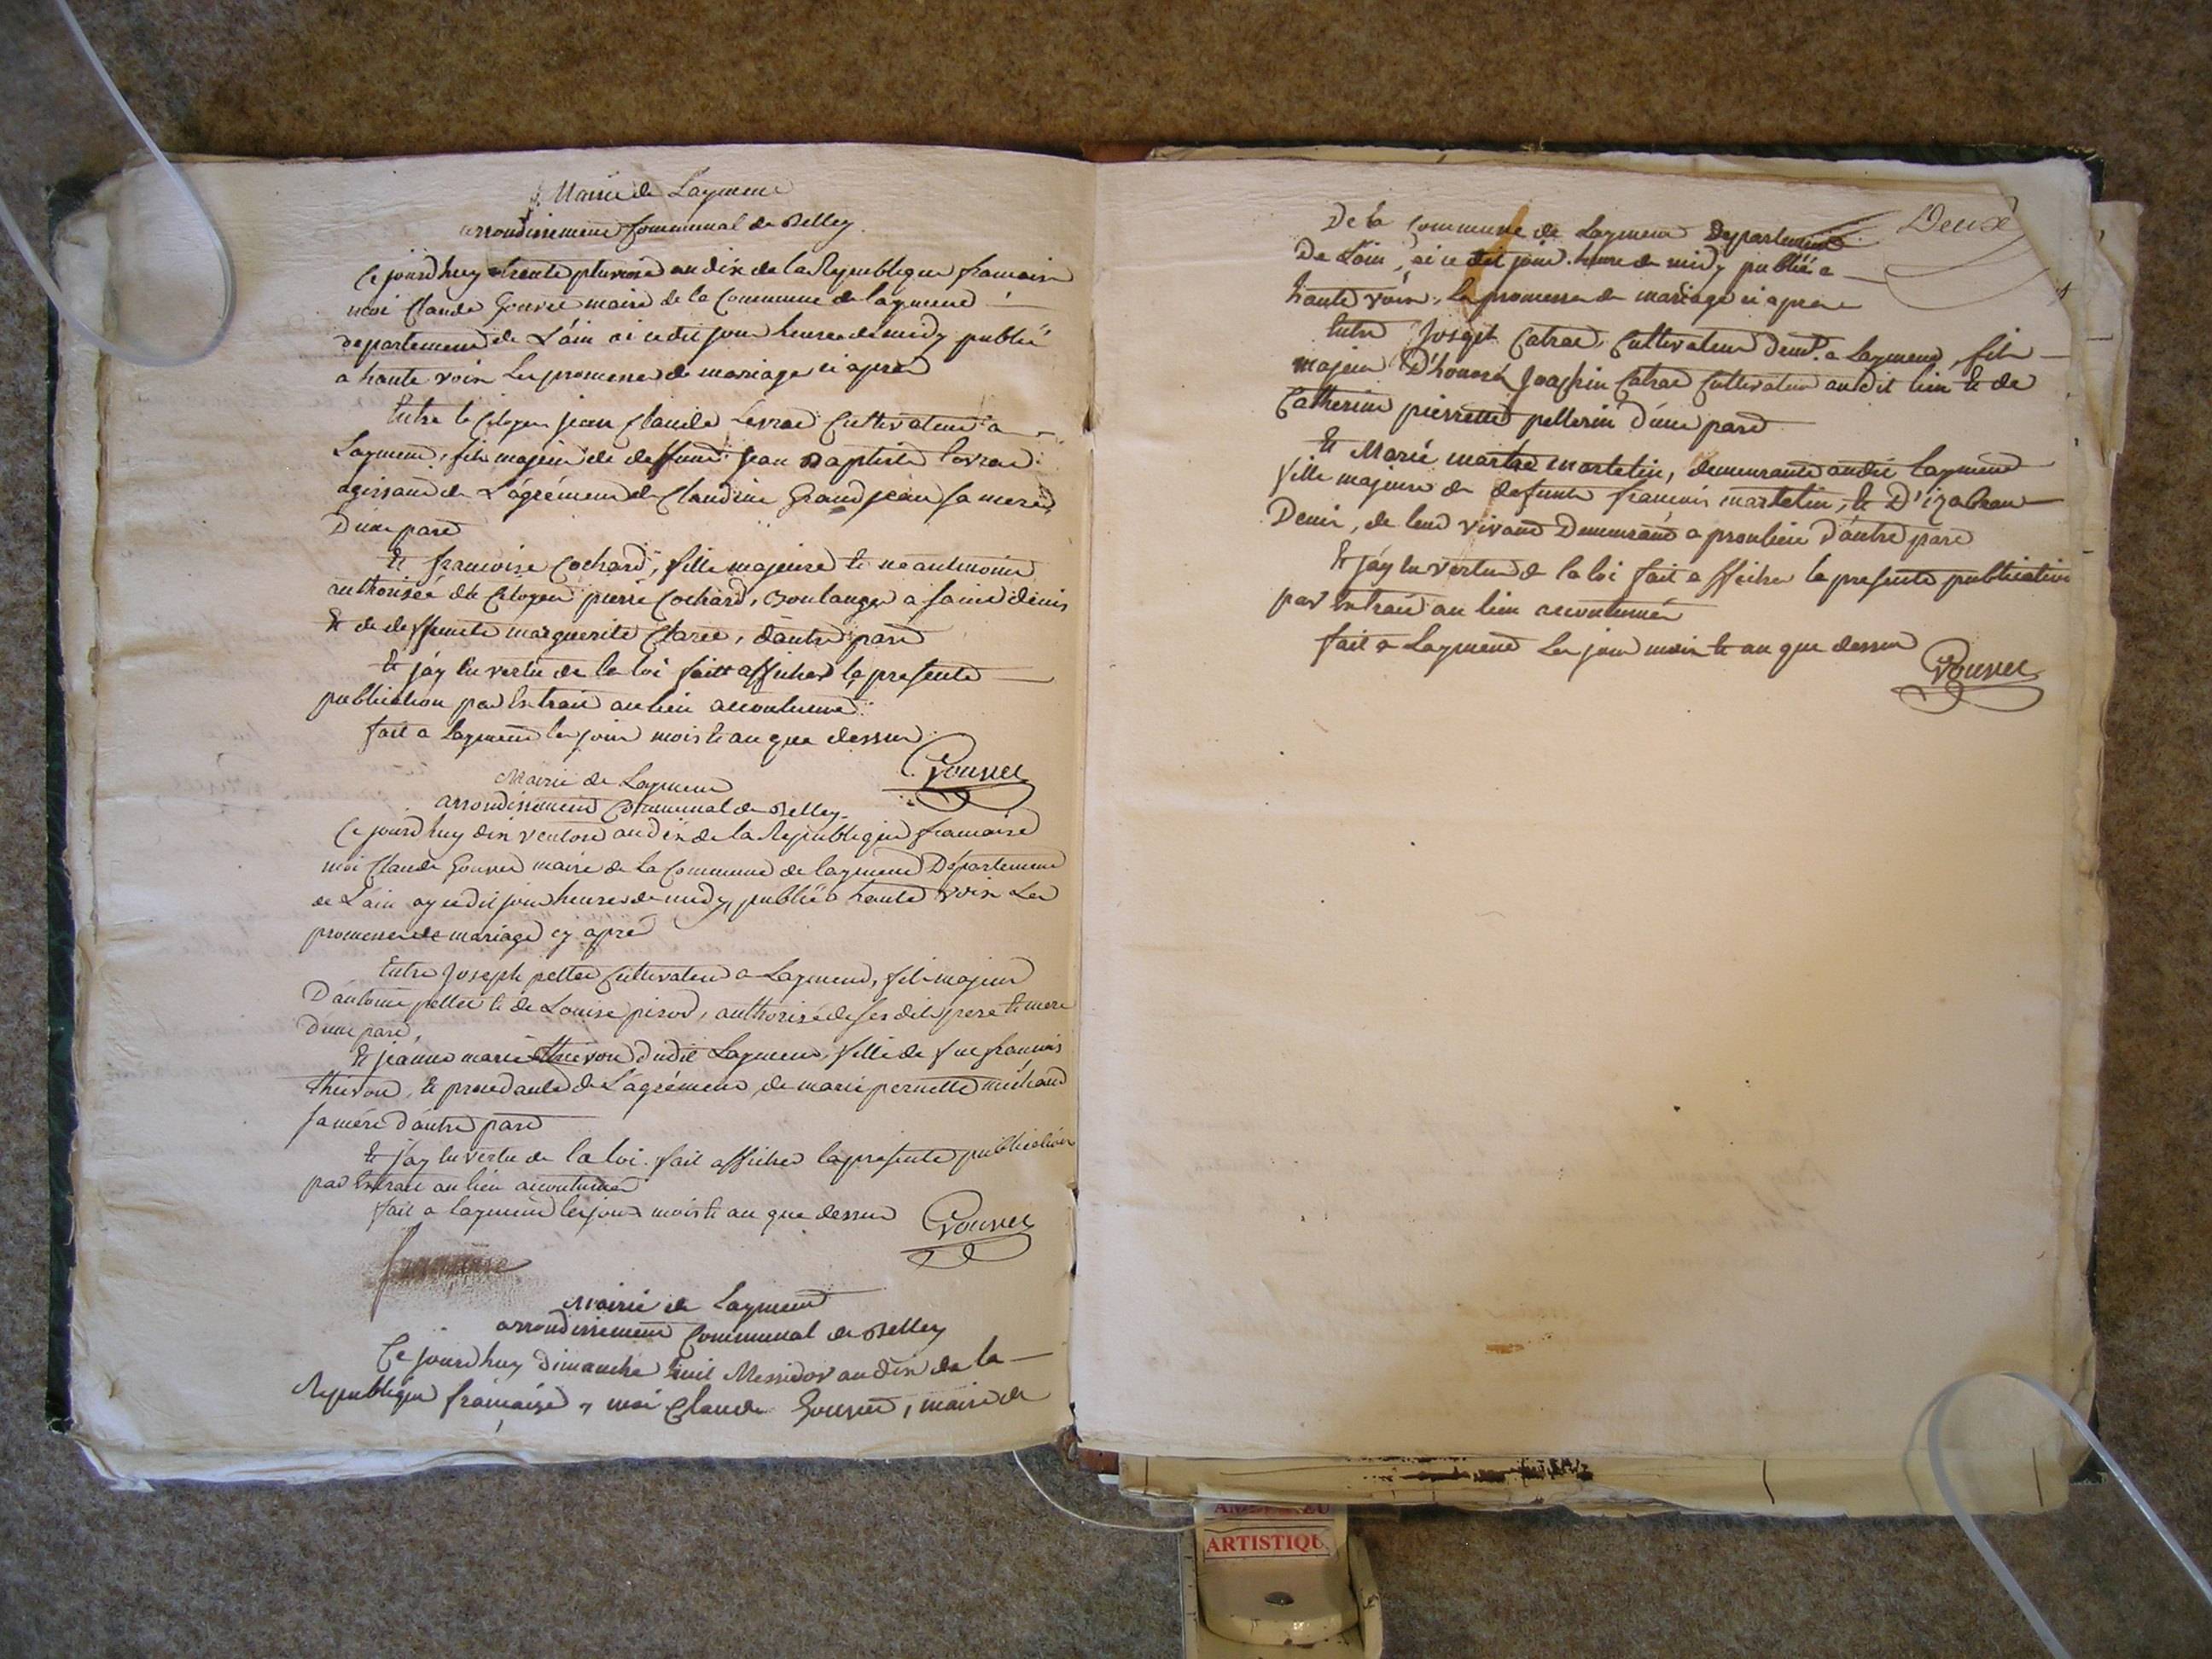 Mairie de Laymens
arrondissement Communal de Belley
Ce jourd'huy trente pluviose an dix de la Republique francaise
moi Claude Gouvet maire de la Commune de laymens
departement de L'ain ai ce dit jour heure de midy publié
a haute voix les promesses de mariage ci apres
Entre le Citoyen jean Claude Levrat Cultivateur a
Laymens, fils majeur de deffunt jean Baptiste levrat
agissant de L'agrément de Claudine Grandjean sa mere
D'une part
Et francoise Cochard, fille majeure et neantmoins
authorisée du Citoyen pierre Cochard, Boulanger a saint denis
Et de deffuncte marguerite Claret, d'autre part
Et j'ay En vertu de la loi fait afficher la presente
publication par Extrait au lieu accoutumé
fait a laymens les jour mois et an que dessus
Gouvet
Mairie de Laymens
arrondissement Communal de Belley
Ce jourd'huy dix ventose an dix de la Republique francaise
moi Claude Gouvet maire de la Commune de laymens Departement
de L'ain ay ce dit jour heure de midy, publié a haute voix Les
promesses de mariage cy apres
Entre Joseph pellet Cultivateur a Laymens, fils majeur
D'antoine pellet et de Louise pirod, authorisé de ses dits pere et mere
D'une part,
Et jeanne marie thevon dudit Laymens, fille de feu francois
thevon, et procedante de L'agrément de marie pernette michaud
sa mère d'autre part
Et j'ay En vertu de la loi fait afficher la presente publication
par Extrait au lieu accoutumé
fait a laymens les jour mois et an que dessus
Gouvet
Mairie de Laymens
arrondissement Communal de Belley
Ce jourd'huy dimanche huit Messidor an dix de la
Republique française, moi Claude Gouvet, maire de
Deux
De la Commune de Laymens Departement
De L'ain, ai ce dit jour heure de midy publié a
haute voix, la promesse de mariage ci apres
Entre Joseph Catrat Cultivateur demt. a Laymens, fils
majeur D'honoré Joachin Catrat Cultivateur audit lieu Et de
Catherine pierrette pellerin d'une part
Et Marie martelin, demeurante audit laymens
fille majeure de defunts francois martelin, Et D'izabeau
Denis, de leur vivant Demeurant a proulieu d'autre part
Et j'ay En vertu de la loi fait afficher la presente publication
par Extrait au lieu accoutumé
fait a Laymens Les jour mois et an que dessus
Gouvet
ARTISTIQU